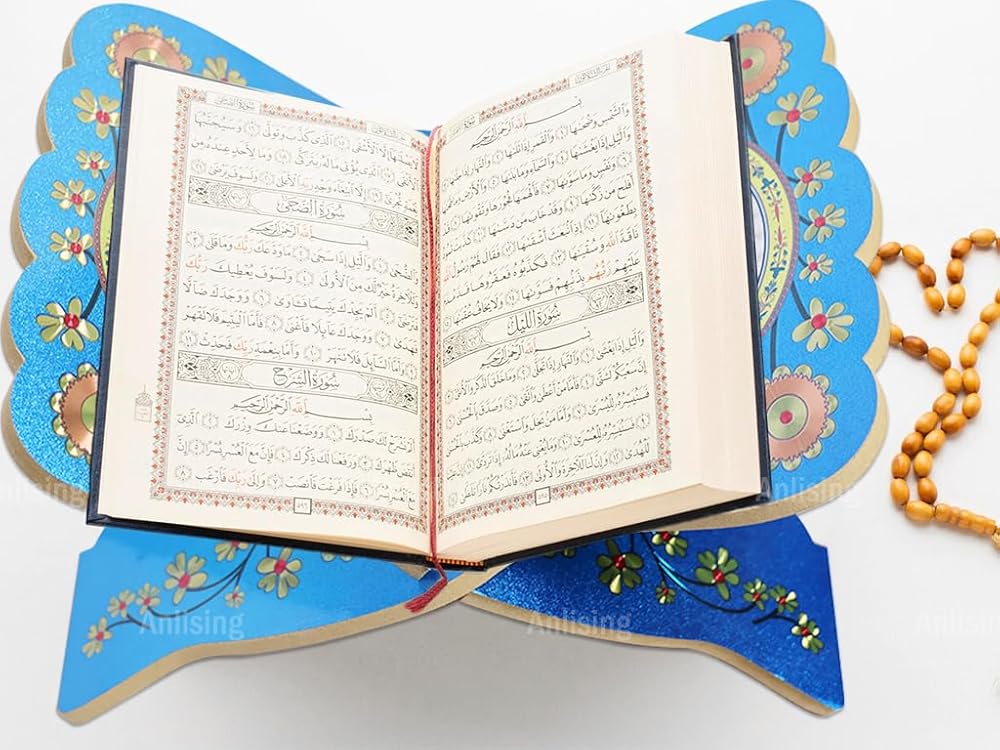 سورة الشمس
بسم الله الرحمن الرحيم
والشمس وضحىها ١ والقمر إذا تلىها ٢ والنهار إذا جلىها ٣
واليل إذا يغشىها ٤ والسماء وما بنىها ٥ والأرض وما طحىها
٦ ونفس وما سوىها ٧ فألهمها فجورها وتقوىها ٨ قد
أفلح من زكىها ٩ وقد خاب من دسىها ١٠ كذبت ثمود
بطغوىها ١١ إذ انبعث أشقىها ١٢ فقال لهم رسول الله
ناقة الله وسقيها ١٣ فكذبوه فعقروها فدمدم
عليهم ربهم بذنبهم فسوىها ١٤ ولا يخاف عقبها ١٥
سورة الليل
بسم الله الرحمن الرحيم
واليل إذا يغشى ١ والنهار إذا تجلى ٢ وما خلق الذكر والأنثى ٣
إن سعيكم لشتى ٤ فأما من أعطى واتقى ٥ وصدق بالحسنى ٦
فسنيسره لليسرى ٧ وأما من بخل واستغنى ٨ وكذب بالحسنى ٩
فسنيسره للعسرى ١٠ وما يغني عنه ماله إذا تردى ١١ إن علينا
للهدى ١٢ وإن لنا للآخرة والأولى ١٣ فأنذرتكم نارا تلظى ١٤
٥٩٥
لا يصلىها إلا الأشقى ١٥ الذي كذب وتولى ١٦ وسيجنبها
الأتقى ١٧ الذي يؤتي ماله يتزكى ١٨ وما لأحد عنده من
نعمة تجزى ١٩ إلا ابتغاء وجه ربه الأعلى ٢٠ ولسوف يرضى ٢١
سورة الضحى
بسم الله الرحمن الرحيم
والضحى ١ واليل إذا سجى ٢ ما ودعك ربك وما قلى ٣
وللآخرة خير لك من الأولى ٤ ولسوف يعطيك ربك
فترضى ٥ ألم يجدك يتيما فآوى ٦ ووجدك ضالا
فهدى ٧ ووجدك عائلا فأغنى ٨ فأما اليتيم فلا تقهر
٩ وأما السائل فلا تنهر ١٠ وأما بنعمة ربك فحدث ١١
سورة الشرح
بسم الله الرحمن الرحيم
ألم نشرح لك صدرك ١ ووضعنا عنك وزرك ٢ الذي
أنقض ظهرك ٣ ورفعنا لك ذكرك ٤ فإن مع العسر يسرا ٥ إن
مع العسر يسرا ٦ فإذا فرغت فانصب ٧ وإلى ربك فارغب ٨
٥٩٦
Anlising
Anlising
Anlising
Anlising